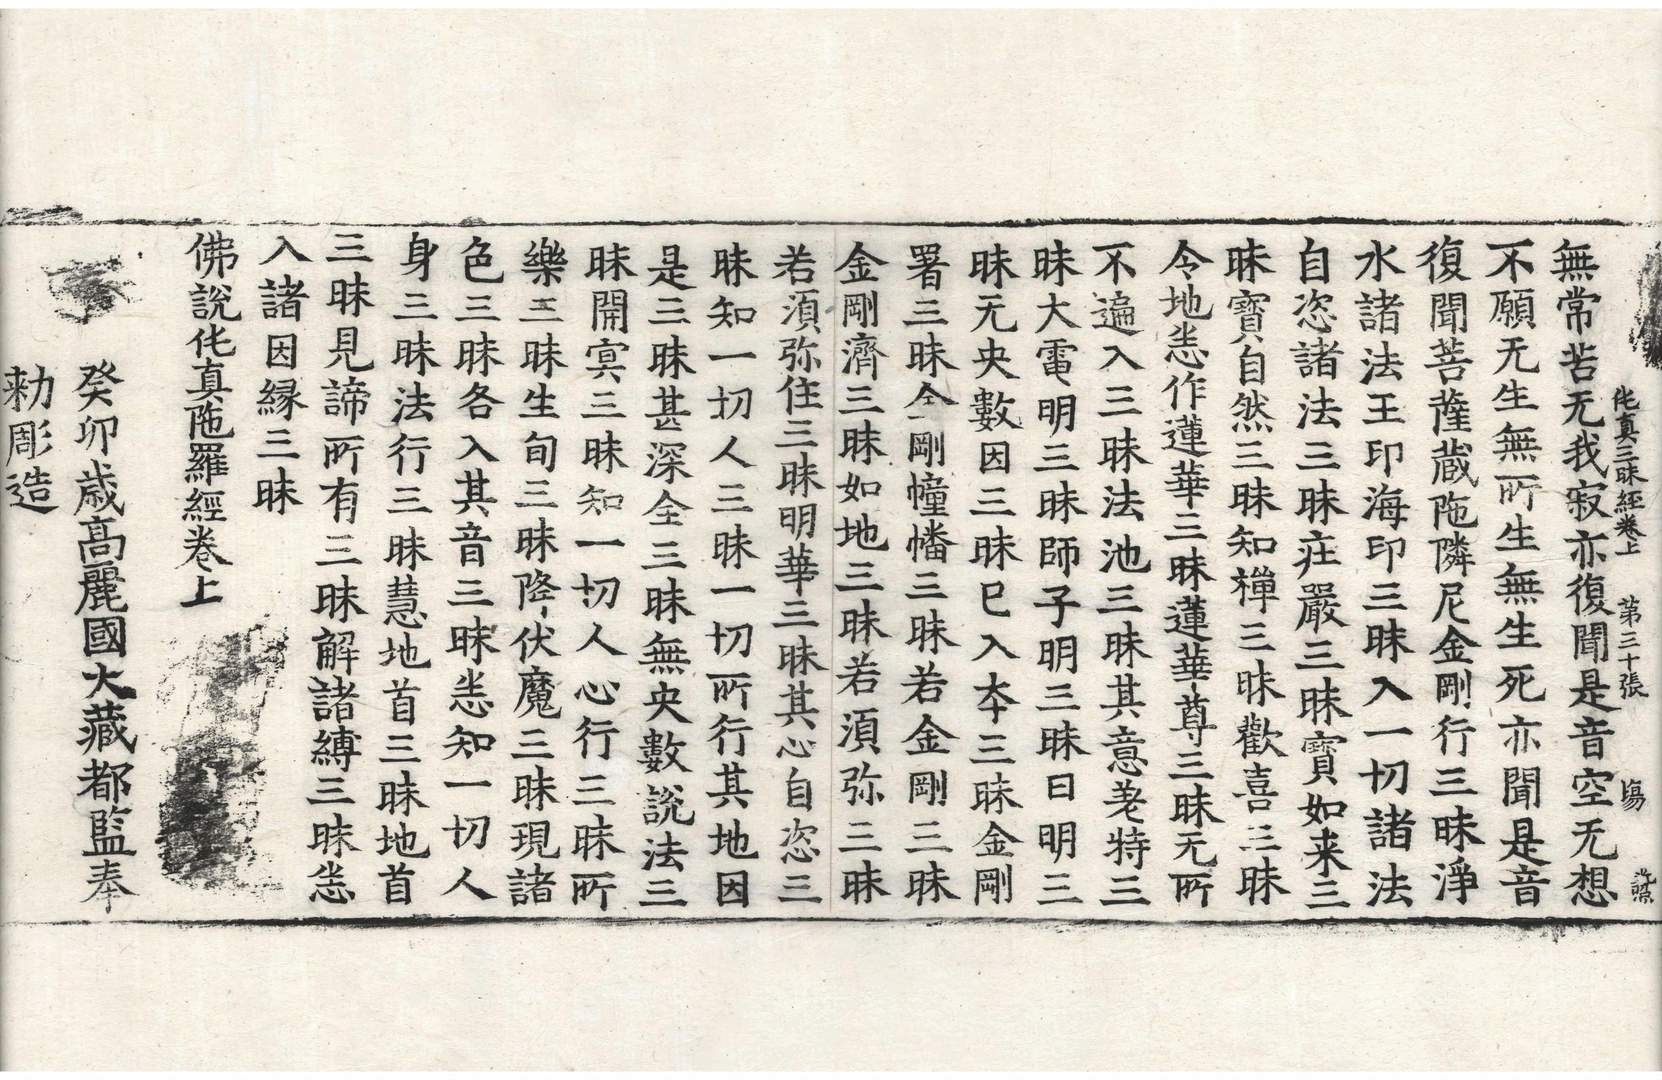 佗真三昧經卷上　第三十張　傷
無常苦无我寂亦復聞是音空无想
不願无生無所生無生死亦聞是音
復聞菩薩蔵陁隣尼金剛行三昧淨
水諸法王印海印三昧入一切諸法
自恣諸法三昧莊嚴三昧寶如来三
昧寶自然三昧知禪三昧歡喜三昧
令地恙作蓮華三昧蓮華尊三昧无所
不遍入三昧法池三昧其意差特三
昧大電明三昧師子明三昧日明三
昧无央數因三昧已入夲三昧金剛
署三昧金剛幢幡三昧若金剛三昧
金剛濟三昧如地三昧若湏弥三昧
若湏弥住三昧明華三昧其心自恣三
昧知一切人三昧一切所行其地因
是三昧甚深金三昧無央數說法三
昧開㝠三昧知一切人心行三昧所
樂三昧生旬三昧降伏魔三昧現諸
色三昧各入其音三昧恙知一切人
身三昧法行三昧慧地首三昧地首
三昧見諦所有三昧解諸縛三昧恙
入諸因縁三昧
佛說佗真陁羅經卷上
癸卯歳高麗國大藏都監奉
勑彫造